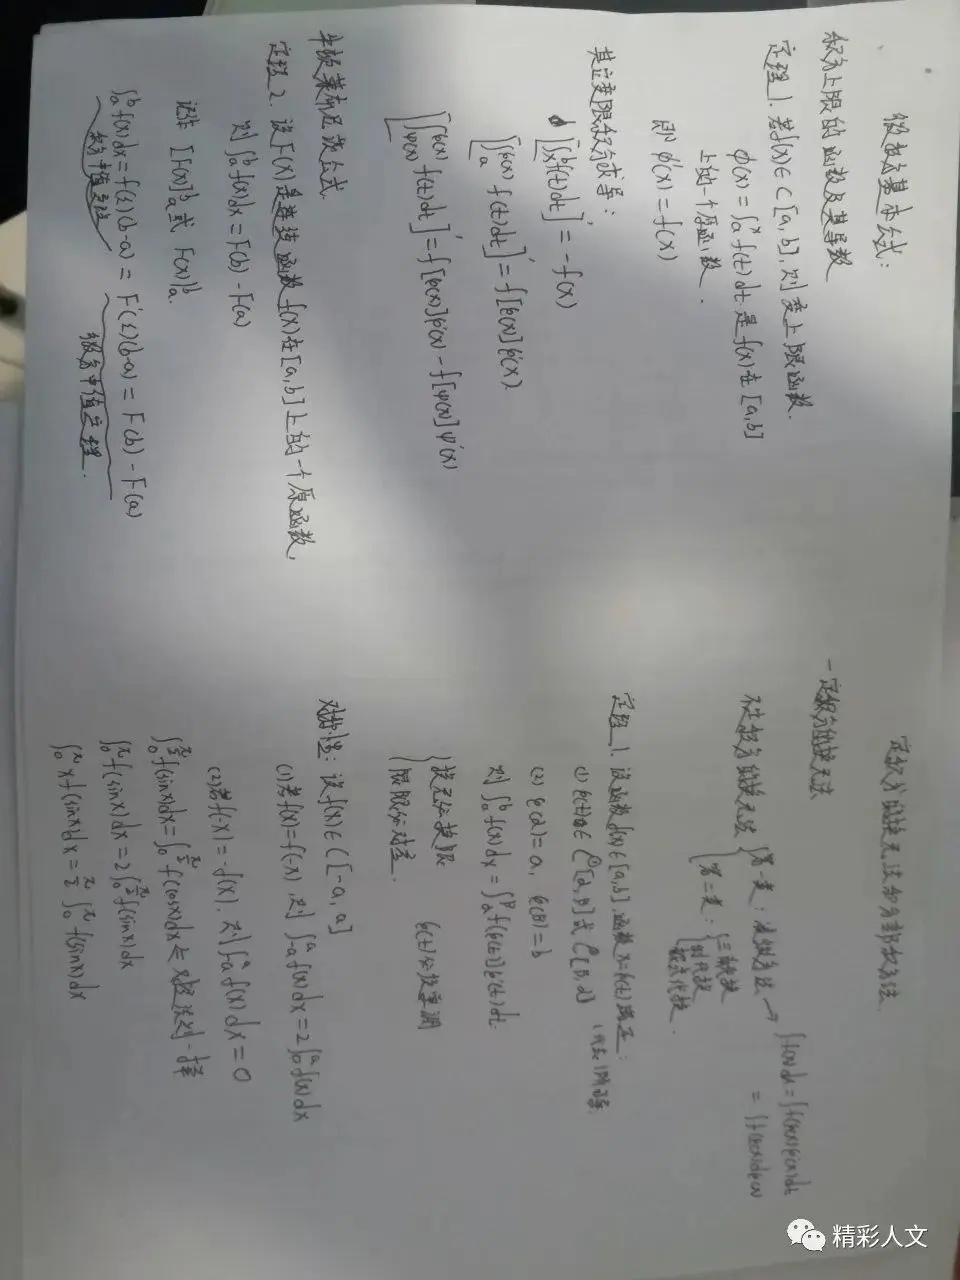 微积分基本公式:
积分上限的函数及其导数
定理1. 若f(x)∈C[a,b], 则变上限函数.
φ(x)=∫ₐˣ f(t)dt 是f(x)在[a,b]
上的一个原函数.
即 φ'(x)=f(x)
其它变限积分求导:
[∫ₓᵇ f(t)dt]'=-f(x)
[∫ₐ^φ(x) f(t)dt]'=f[φ(x)]φ'(x).
[∫_ψ(x)^φ(x) f(t)dt]'=f[φ(x)]φ'(x)-f[ψ(x)]ψ'(x)
牛顿莱布尼茨公式.
定理2. 设F(x)是连续函数f(x)在[a,b]上的一个原函数,
则∫ₐᵇ f(x)dx=F(b)-F(a)
记作 [F(x)]ₐᵇ 或 F(x)|ₐᵇ.
∫ₐᵇ f(x)dx=f(ξ)(b-a)=F'(ξ)(b-a)=F(b)-F(a)
积分中值定理
微分中值定理.
定积分的换元法和分部积分法.
一 定积分的换元法
不定积分的换元法
第一类:
第二类:
三角代换
根式代换.
定理1. 设函数f(x)∈[a,b],函数x=φ(t)满足:
(1) φ(t)∈C¹[α,β]或C¹[β,α]
(2) φ(α)=a, φ(β)=b
则∫ₐᵇ f(x)dx=∫_α^β f[φ(t)]φ'(t)dt.
换元必换限
φ(t)必须单调
限限必对应.
对称性: 设f(x)∈C[-a,a]
(1)若f(x)=f(-x),则∫₋ₐᵃ f(x)dx=2∫₀ᵃ f(x)dx
(2)若f(-x)=-f(x),则∫₋ₐᵃ f(x)dx=0
∫₀^(π/2) f(sinx)dx=∫₀^(π/2) f(cosx)dx
∫₀^π f(sinx)dx=2∫₀^(π/2) f(sinx)dx
∫₀^π xf(sinx)dx=π/2∫₀^π f(sinx)dx
精彩人文